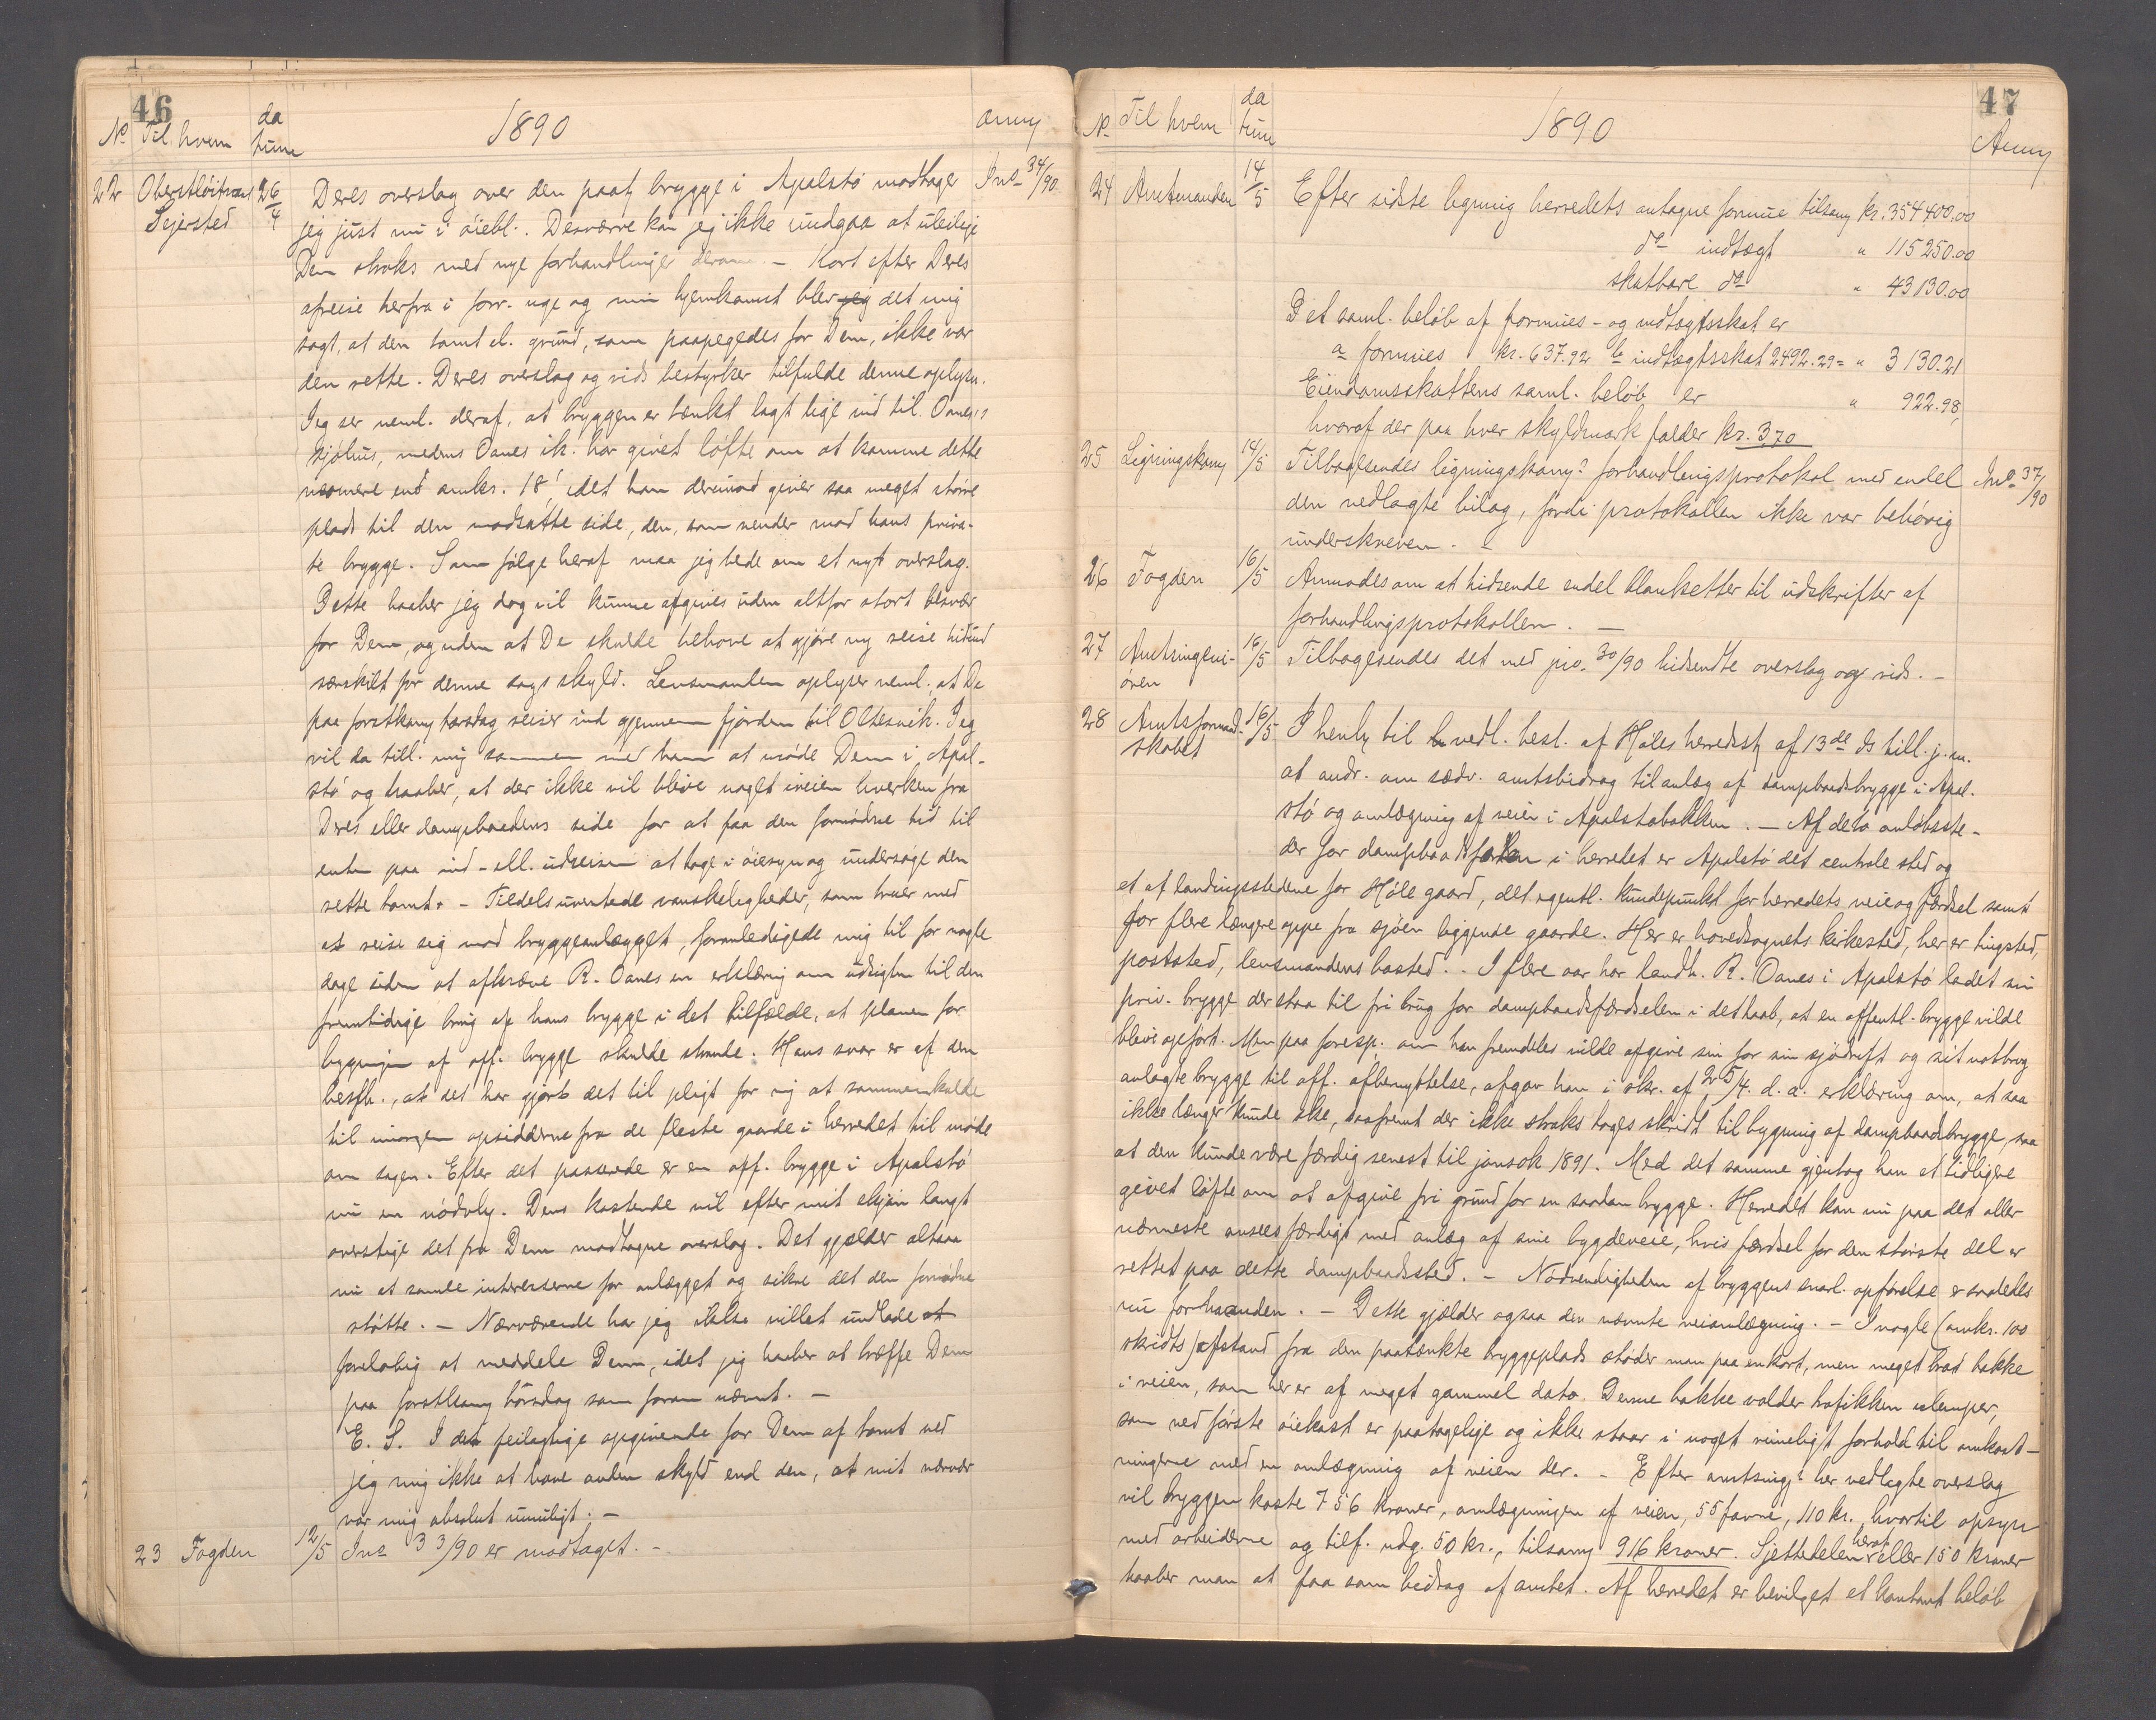 46
No Til hvem datum 1890 anm
22 Oberstløitnant Sejersted 26/4 Deres overslag over den paat. brygge i Apalstø modtager Jno 34/90
jeg just nu i øiebl. Desværre kan jeg ikke undgaa at uleilige
Dem straks med nye forhandlinger derom. – Kort efter Deres
afreise herfra i forr. uge og min hjemkomst blev jeg det mig
sagt, at den tomt el. grund, som paapegedes for Dem, ikke var
den rette. Deres overslag og rids bestyrker tilfulde denne oplysn.
Jeg ser neml. deraf, at bryggen er tænkt lagt lige ind til Oanes's
sjøhus, medens Oanes ik. har givet løfte om at komme dette
nærmere end omkr. 18', idet han derimod giver saa meget større
plads til den modsatte side, den, som vender mod hans priva-
te brygge. Som følge heraf maa jeg bede om et nyt overslag.
Dette haaber jeg dog vil kunne afgives uden altfor stort besvær
for Dem, og uden at De skulde behøve at gjøre ny reise hidind
særskilt for denne sags skyld. Lensmanden oplyser neml., at De
paa førstkomm torsdag reiser ind gjennem fjorden til Oltesvik. Jeg
vil da till. mig sammen med ham at møde Dem i Apal-
stø og haaber, at der ikke vil blive noget iveien hverken fra
Deres eller dampbaadens side for at faa den fornødne tid til
enten paa ind- ell. udreisen at tage i øiesyn og undersøge den
rette tomt. – Tildels uventede vanskeligheder, som truer med
at reise sig mod bryggeanlægget, foranledigede mig til for nogle
dage siden at afkræve R. Oanes en erklæring om udsigten til den
fremtidige brug af hans brygge i det tilfælde, at planen for
bygningen af off. brygge skulde strande. Hans svar er af den
besk., at det har gjort det til pligt for mig at sammenkalde
til imorgen opsidderne fra de fleste gaarde i herredet til møde
om sagen. Efter det passerede er en off. brygge i Apalstø
nu en nødv. Dens kostende vil efter mit skjøn langt
overstige det fra Dem modtagne overslag. Det gjælder altsaa
nu at samle interesserne for anlægget og sikre det den fornødne
støtte. – Nærværende har jeg ikke villet undlade at
foreløbig at meddele Dem, idet jeg haaber at træffe Dem
paa førstkomm torsdag som foran nævnt. –
E. S. I den feilagtige opgivende for Dem af tomt ved
jeg mig ikke at have anden skyld end den, at mit nærvær
var mig absolut umuligt. –
23 Fogden 12/5 Jno 33/90 er modtaget. –
47
No Til hvem datum 1890 Anm
24 Amtmanden 14/5 Efter sidste ligning herredets antagne formue tilsamm kr. 354 400.00
do indtægt " 115 250.00
skatbare do " 43 130.00
Det saml. beløb af formues- og indtægtsskat er
a formues kr. 637.92 b indtægtsskat 2492.29 = " 3 130.21
Eiendomsskattens saml. beløb er " 922.98,
hvoraf der paa hver skyldmark falder kr. 3,70
25 Ligningskom 14/5 Tilbagesendes ligningskom? forhandlingsprotokol med endel Jno 37/90
den vedlagte bilag, fordi protokollen ikke var behørig
underskreven. –
26 Fogden 16/5 Anmodes om at hidsende endel blanketter til udskrifter af
forhandlingsprotokollen. –
27 Amtsingeni-øren 16/5 Tilbagesendes det med jno. 30/90 hidsendte overslag og rids. –
28 Amtsformandskabet 16/5 I henh. til vedl. besl. af Høles herredsst. af 13de ds till. j. m.
at andr. om sædv. amtsbidrag til anlæg af dampbaadsbrygge i Apal-
stø og omlægning af veien i Apalstøbakken. – Af de to anløbsste-
der for dampbaadsfarten i herredet er Apalstø det centrale sted og
et af landingsstedene for Høle gaard, det egentl. knudepunkt for herredets veie og færdsel samt
for flere længere oppe fra sjøen liggende gaarde. Her er hovedsognets kirkested, her er tingsted,
poststed, lensmandens bosted. . I flere aar har landh. R. Oanes i Apalstø ladet sin
priv. brygge der staa til fri brug for dampbaadsfærdselen i det haab, at en offentl. brygge vilde
blive opført. Men paa foresp. om han fremdeles vilde afgive sin for sin sjødrift og sit notbrug
anlagte brygge til off. afbenyttelse, afgav han i skr. af 25/4. d. a. erklæring om, at saa
ikke længer kunde ske, saafremt der ikke straks toges skridt til bygning af dampbaadsbrygge, saa
at den kunde være færdig senest til jonsok 1891. Med det samme gjentog han et tidligere
givet løfte om at afgive fri grund for en saadan brygge. Herredet kan nu paa det aller
nærmeste ansees færdigt med anlæg af sine bygdeveie, hvis færdsel for den største del er
rettet paa dette dampbaadssted. – Nødvendigheden af bryggens snarl. opførelse er saaledes
nu forhaanden. – Dette gjælder ogsaa den nævnte veiomlægning. – I nogle (omkr. 100
skridts) afstand fra den paatænkte bryggeplads støder man paa en kort, men meget brat bakke
i veien, som her er af meget gammel dato. Denne bakke volder trafikken ulemper,
som ved første øiekast er paatagelige og ikke staar i noget rimeligt forhold til omkost-
ningerne med en omlægning af veien der. – Efter amtsing.s her vedlagte overslag
vil bryggen koste 756 kroner, omlægningen af veien, 55 favne, 110 kr., hvortil opsyn
med arbeiderne og tilf. udg. 50 kr., tilsamm 916 kroner. Sjettedelen heraf eller 150 kroner
haaber man at faa som bidrag af amtet. Af herredet er bevilget et kontant beløb